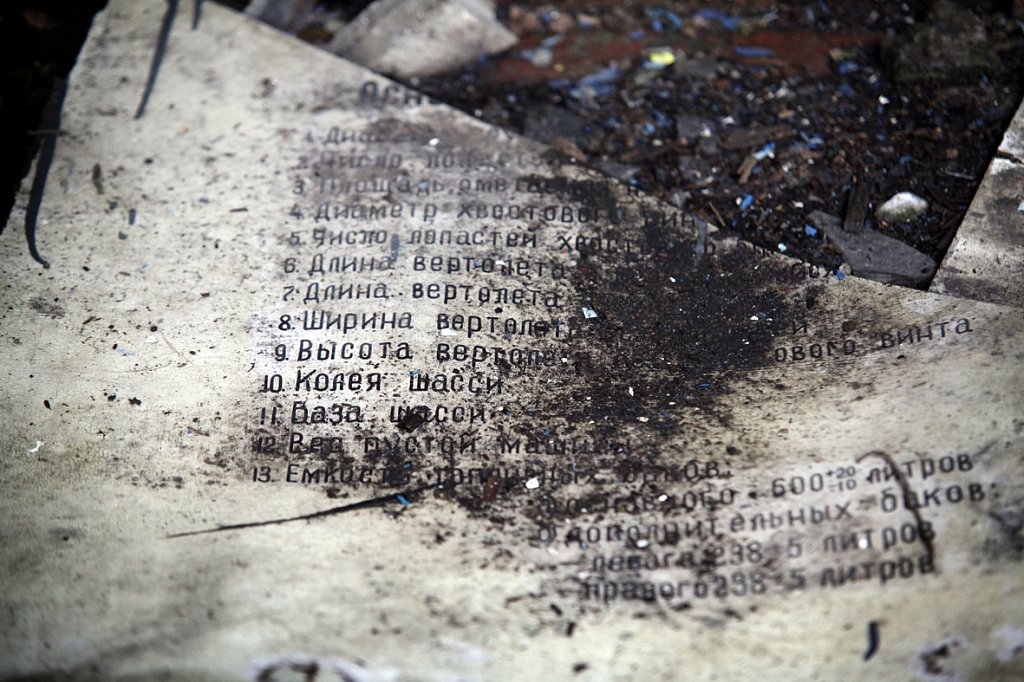 ОСН
1. Диа
2. Число лопастей
3. Площадь ометаемая
4. Диаметр хвостового вин
5. Число лопастей хвост
6. Длина вертолета
7. Длина вертолета
8. Ширина вертолета
9. Высота вертолета ового винта
10. Колея шасси
11. База шасси
12. Вес пустой машины
13. Емкость топливных баков:
основного - 600 +20 -10 литров
дополнительных баков:
левого 238-5 литров
правого 238-5 литров